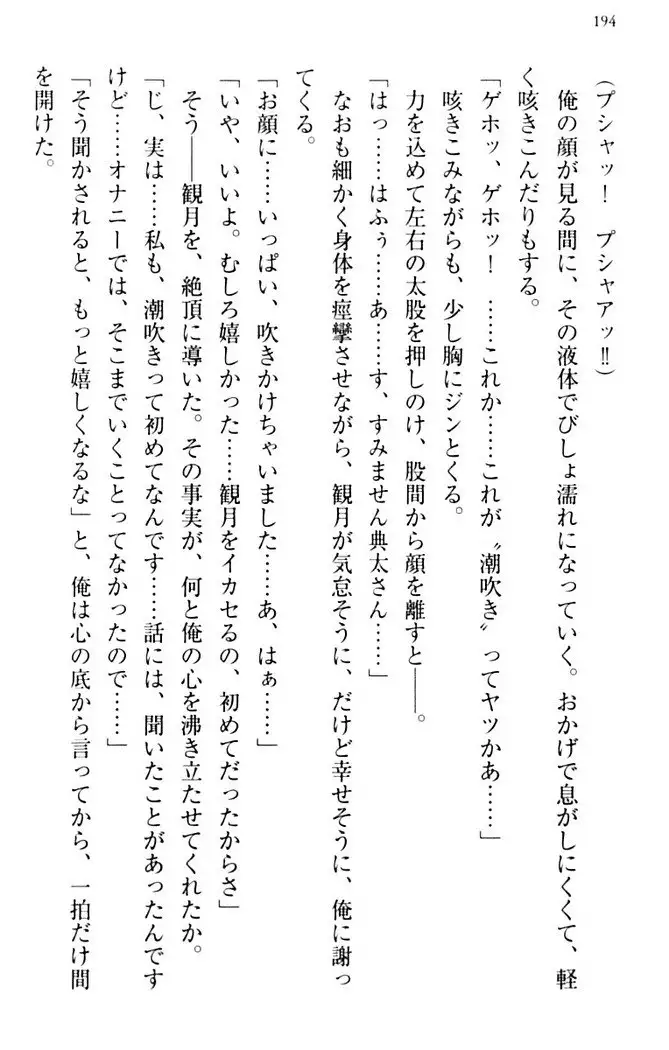 194
（プシャッ！　プシャアッ‼）
俺の顔が見る間に、その液体でびしょ濡れになっていく。おかげで息がしにくくて、軽
く咳きこんだりもする。
「ゲホッ、ゲホッ！　……これか……これが〝潮吹き〟ってヤツかあ……」
咳きこみながらも、少し胸にジンとくる。
力を込めて左右の太股を押しのけ、股間から顔を離すと――。
「はっ……はふぅ……あ……す、すみません典太さん……」
なおも細かく身体を痙攣させながら、観月が気怠そうに、だけど幸せそうに、俺に謝っ
てくる。
「お顔に……いっぱい、吹きかけちゃいました……あ、はぁ……」
「いや、いいよ。むしろ嬉しかった……観月をイカセるの、初めてだったからさ」
そう――観月を、絶頂に導いた。その事実が、何と俺の心を沸き立たせてくれたか。
「じ、実は……私も、潮吹きって初めてなんです……話には、聞いたことがあったんです
けど……オナニーでは、そこまでいくことってなかったので……」
「そう聞かされると、もっと嬉しくなるな」と、俺は心の底から言ってから、一拍だけ間
を開けた。